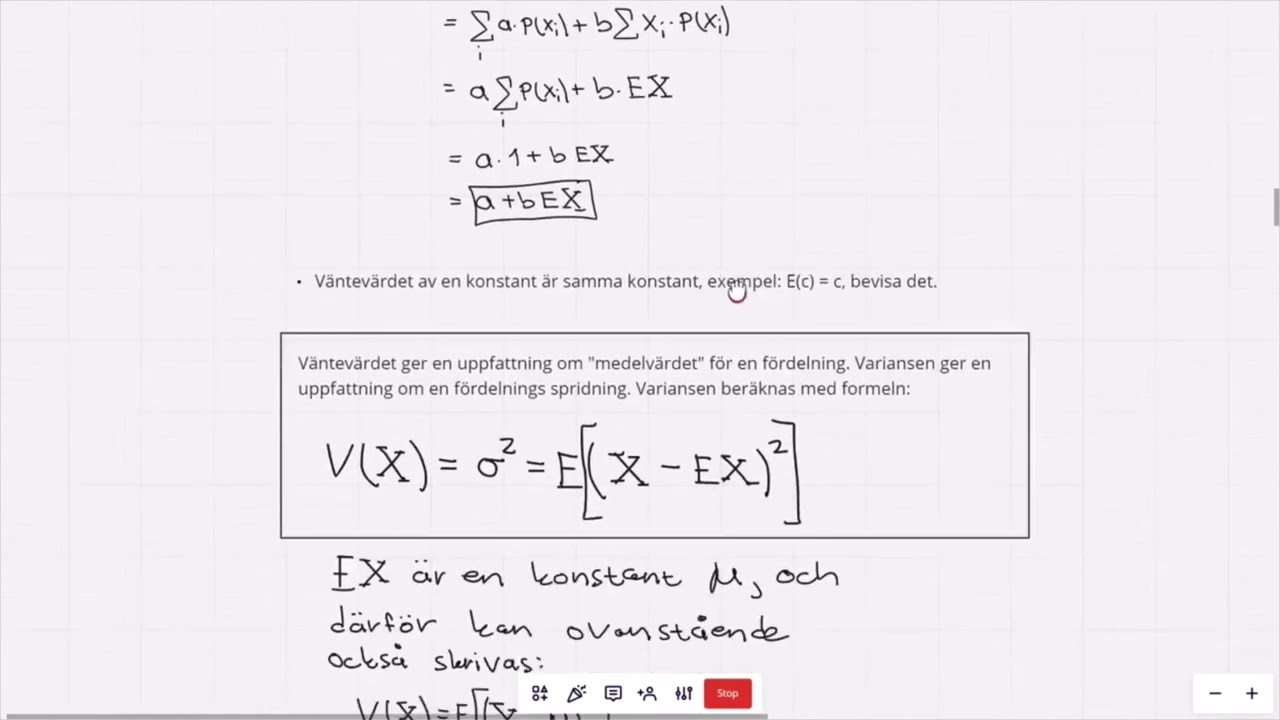 = ∑ a·P(xᵢ) + b∑ xᵢ·P(xᵢ)
i
= a∑P(xᵢ) + b·EX
i
= a·1 + b EX
= a + b EX
• Väntevärdet av en konstant är samma konstant, exempel: E(c) = c, bevisa det.
Väntevärdet ger en uppfattning om "medelvärdet" för en fördelning. Variansen ger en
uppfattning om en fördelnings spridning. Variansen beräknas med formeln:
V(X) = σ² = E[(X - EX)²]
EX är en konstant μ, och
därför kan ovanstående
också skrivas:
V(X) = E[(X
Stop